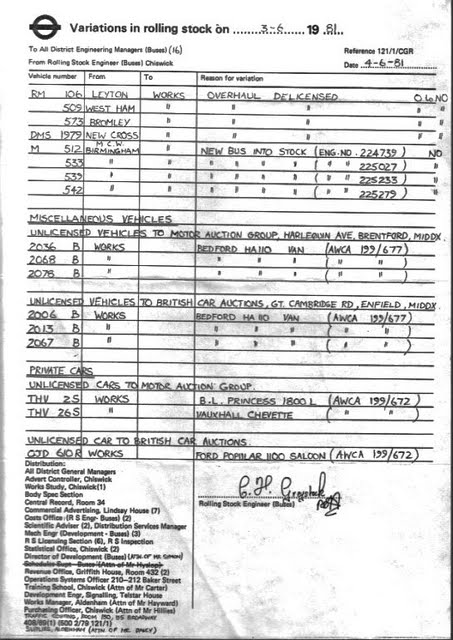 Variations in rolling stock on 3-6 1981.
To All District Engineering Managers (Buses) (16) Reference 121/1/CGR
From Rolling Stock Engineer (Buses) Chiswick Date 4-6-81
Vehicle number From To Reason for variation
RM 106 LEYTON WORKS OVERHAUL DELICENSED O/L NO
509 WEST HAM " " " " NO
573 BROMLEY " " " " "
DMS 1979 NEW CROSS " " " " "
M 512 M.C.W. BIRMINGHAM " NEW BUS INTO STOCK (ENG. NO. 224739) NO
533 " " " " " " ( " " 225027) "
539 " " " " " " ( " " 225233) "
542 " " " " " " ( " " 225279) "
MISCELLANEOUS VEHICLES
UNLICENSED VEHICLES TO MOTOR AUCTION GROUP, HARLEQUIN AVE, BRENTFORD, MIDDX.
2036 B WORKS BEDFORD HA110 VAN (AWCA 199/677)
2068 B " " " " ( " " )
2076 B " " " " ( " " )
UNLICENSED VEHICLES TO BRITISH CAR AUCTIONS, GT. CAMBRIDGE RD, ENFIELD, MIDDX.
2006 B WORKS BEDFORD HA110 VAN (AWCA 199/677)
2013 B " " " " ( " " )
2067 B " " " " ( " " )
PRIVATE CARS
UNLICENSED CARS TO MOTOR AUCTION GROUP.
THV 2S WORKS B.L. PRINCESS 1800L (AWCA 199/672)
THV 26S " VAUXHALL CHEVETTE ( " " )
UNLICENSED CAR TO BRITISH CAR AUCTIONS.
GJD 610R WORKS FORD POPULAR 1100 SALOON (AWCA 199/672)
Distribution:
All District General Managers
Advert Controller, Chiswick
Works Study, Chiswick(1)
Body Spec Section
Central Record, Room 34
Commercial Advertising, Lindsay House (7)
Costs Office (R S Engr- Buses) (2)
Scientific Adviser (2), Distribution Services Manager
Mech Engr (Development - Buses) (3)
R S Licensing Section (6), R S Inspection
Statistical Office, Chiswick (2)
Director of Development (Buses) (ATTN OF MR. SIMON)
Schedules Supt - Buses (Attn of Mr Hyslop)
Revenue Office, Griffith House, Room 432 (2)
Operations Systems Officer 210-212 Baker Street
Training School, Chiswick (Attn of Mr Carter)
Development Engr, Signalling, Telstar House
Works Manager, Aldenham (Attn of Mr Hayward)
Purchasing Officer, Chiswick (Attn of Mr Hillies)
TRAFFIC CONTROL, ROOM 130, 55 BROADWAY
408/89(1) (500 2/79 121/1)
ALDENHAM (ATTN OF MR
Rolling Stock Engineer (Buses)